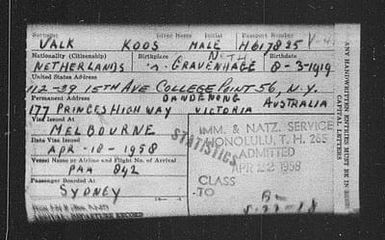 VALK KOOS MALE H617825
Nationality (Citizenship) Birthplace NETH.
NETHERLANDS 'S. GRAVENHAGE 8-3-1919
United States Address
112-39 15TH AVE COLLEGE POINT 56, N.Y.
Permanent Address DANDENONG
177 PRINCES HIGHWAY VICTORIA AUSTRALIA
Visa Issued At
MELBOURNE
Date Visa Issued
APR-18-1958
Vessel Name or Airline and Flight No. of Arrival
PAA 042
Passenger Boarded at
SYDNEY
STATISTICS
IMM. & NATZ. SERVICE
HONOLULU, T. H. 265
ADMITTED
APR 22 1958
CLASS
TO
ANY HANDWRITTEN ENTRIES MUST BE IN
CAPITAL LETTERS